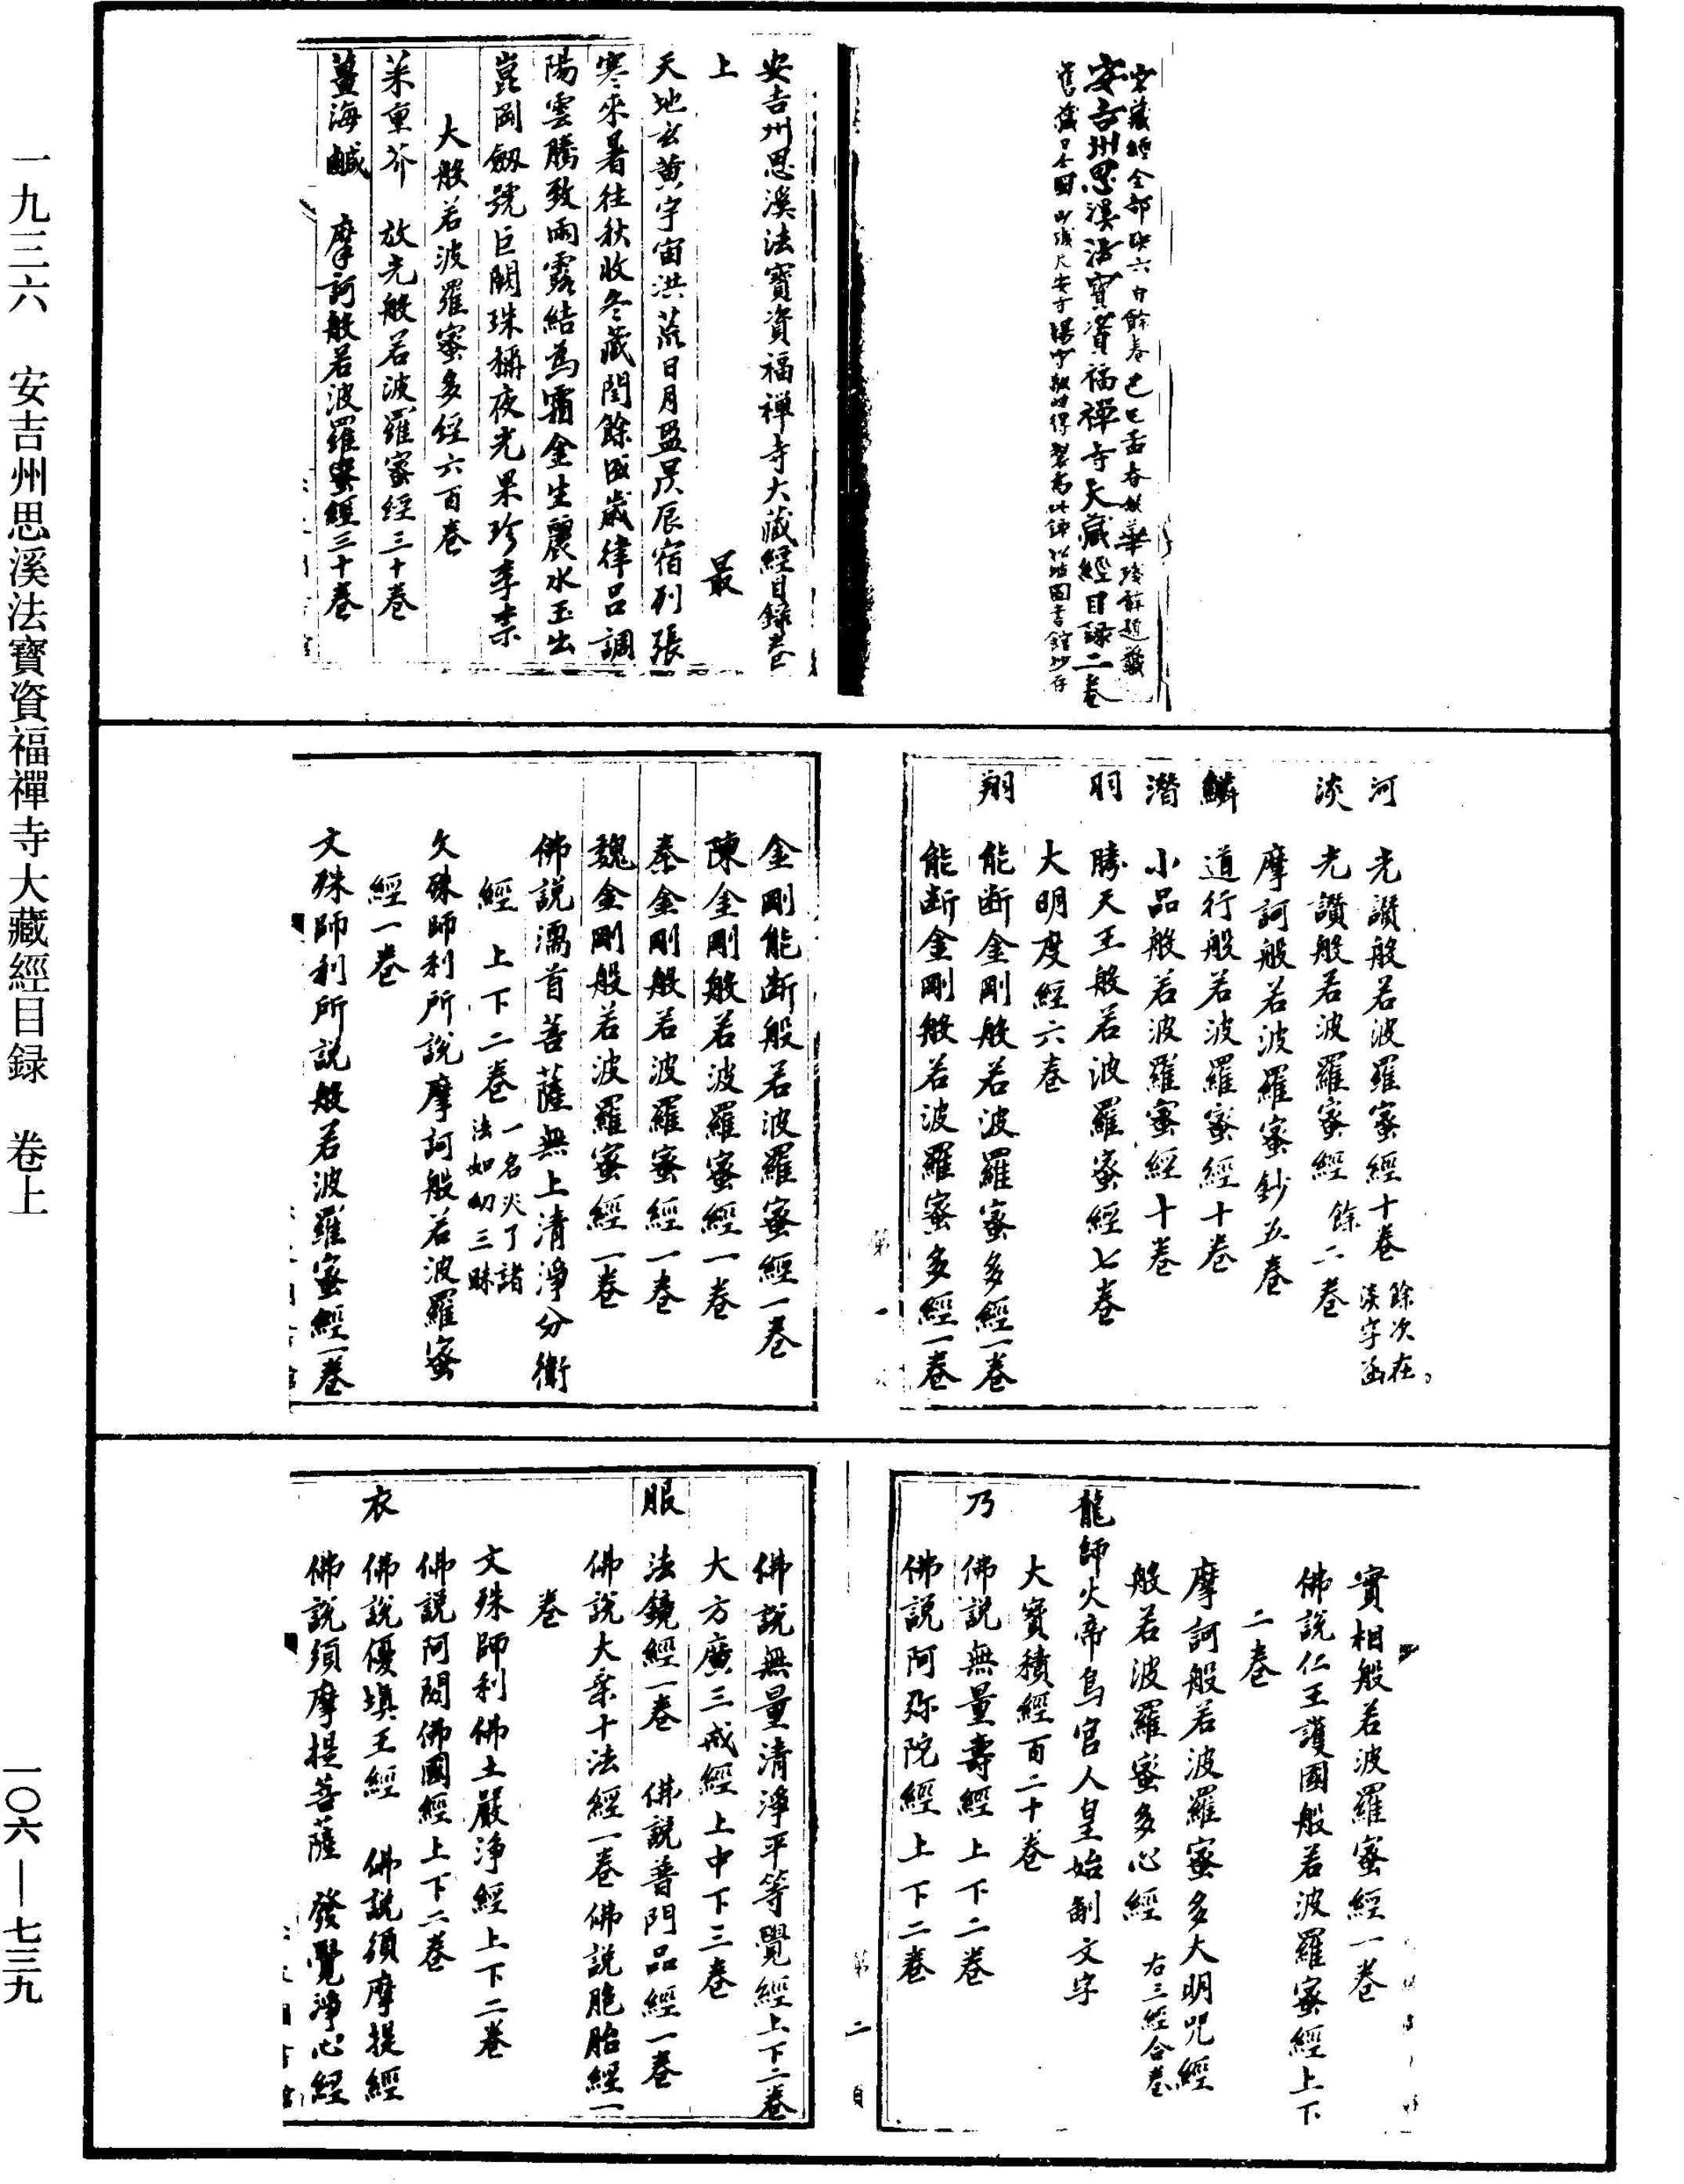 一九三六　安吉州思溪法寶資福禪寺大藏經目録　卷上
一〇六—七三九
宋藏經全部 六 餘卷
安吉州思溪法寶資福禪寺大藏經目録二卷
安吉州思溪法寶資福禪寺大藏經目錄卷
上　最
天地玄黄宇宙洪荒日月盈昃辰宿列張
寒來暑往秋收冬藏閏餘成歲律吕調
陽雲騰致雨露結為霜金生麗水玉出
崑岡劔號巨闕珠稱夜光果珍李柰
大般若波羅蜜多經六百卷
菜重芥　放光般若波羅蜜經三十卷
薑海鹹　摩訶般若波羅蜜經三十卷
河　光讃般若波羅蜜經十卷 餘次在淡字函
淡　光讃般若波羅蜜經　餘二卷
摩訶般若波羅蜜鈔五卷
鱗　道行般若波羅蜜經十卷
潛　小品般若波羅蜜經十卷
羽　勝天王般若波羅蜜經七卷
大明度經六卷
翔　能断金剛般若波羅蜜多經一卷
能断金剛般若波羅蜜多經一卷
第一
金剛能断般若波羅蜜經一卷
陳金剛般若波羅蜜經一卷
秦金剛般若波羅蜜經一卷
魏金剛般若波羅蜜經一卷
佛説濡首菩薩無上清淨分衛
經　上下二卷 一名决了諸法如幻三昧
文殊師利所説摩訶般若波羅蜜
經一卷
文殊師利所説般若波羅蜜經一卷
實相般若波羅蜜經一卷
佛説仁王護國般若波羅蜜經上下
二卷
摩訶般若波羅蜜多大明咒經
般若波羅蜜多心經　右三經合卷
龍師火帝鳥官人皇始制文字
大寶積經百二十卷
乃　佛説無量壽經上下二卷
佛説阿弥陀經上下二卷
第二頁
佛説無量清淨平等覺經上下二卷
大方廣三戒經上中下三卷
服　法鏡經一卷　佛説普門品經一卷
佛説大乘十法經一卷佛説胞胎經一
卷
文殊師利佛土嚴淨經上下二卷
佛説阿閦佛國經上下二卷
衣　佛説優填王經　佛説須摩提經
佛説須摩提菩薩　發覺淨心經